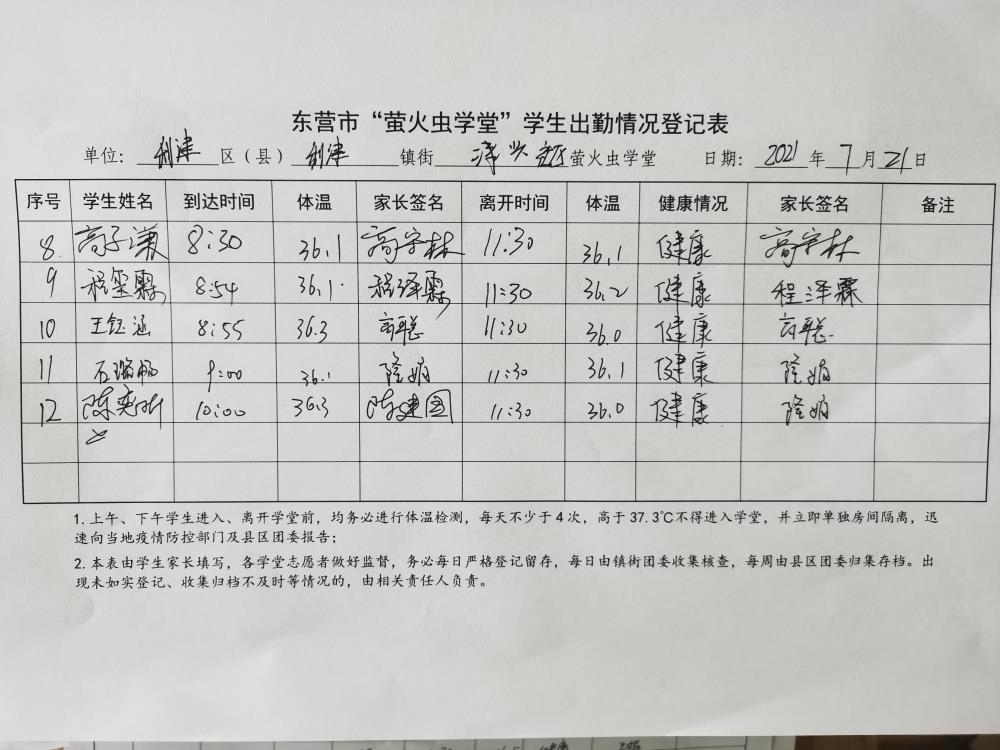 东营市“萤火虫学堂”学生出勤情况登记表
单位：利津区（县）利津镇街 萤火虫学堂 日期：2021年7月21日
序号 学生姓名 到达时间 体温 家长签名 离开时间 体温 健康情况 家长签名 备注
8. 高子谦 8:30 36.1 高宇林 11:30 36.1 健康 高宇林
9 程玺霖 8:54 36.1 程泽霖 11:30 36.2 健康 程泽霖
10 王钰涵 8:55 36.3 11:30 36.0 健康
11 9:00 36.1 隆娟 11:30 36.1 健康 隆娟
12 陈奕昕 10:00 36.3 陈建国 11:30 36.0 健康 隆娟
1. 上午、下午学生进入、离开学堂前，均务必进行体温检测，每天不少于4次，高于37.3℃不得进入学堂，并立即单独房间隔离，迅
速向当地疫情防控部门及县区团委报告；
2. 本表由学生家长填写，各学堂志愿者做好监督，务必每日严格登记留存，每日由镇街团委收集核查，每周由县区团委归集存档。出
现未如实登记、收集归档不及时等情况的，由相关责任人负责。